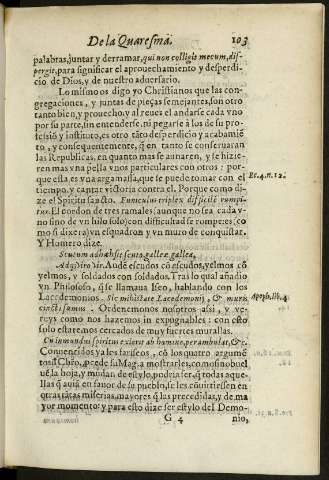 De la Quaresma. 103
palabras, juntar y derramar, qui non colligit mecum, dis-
pergit, para significar el aprouechamiento y desperdi-
cio de Dios, y de nuestro aduersario.
Lo mismo os digo yo Christianos que las con-
gregaciones, y juntas de pieças semejantes, son otro
tanto bien, y prouecho, y al reues el andarse cada vno
por su parte, sin entenderse, ni pegarse à los de su pro-
fessiõ y instituto, es otro tãto desperdicio y acabamiẽ
to, y consequentemente, q̃ en tanto se conseruaran
las Republicas, en quanto mas se aunaren, y se hizie-
ren mas vna pella vnos particulares con otros: por-
que esta es vna argamassa, que se puede tomar con el Ec.4.n.12.
tiempo, y cantar victoria contra el. Porque como di-
ze el Spiritu sancto. Funiculus triplex difficilè rumpi-
tur. El cordon de tres ramales (aunque no sea cada v-
no sino de vn hilo solo) con dificultad se romperè: (co
mo si dixera) vn esquadron y vn muro de conquistar.
Y Homero dize.
Scutum adhæsit scuto, galeæ galea,
Atq; viro vir. Aude escudos cõ escudos, yelmos cõ
yelmos, y soldados con soldados. Tras lo qual añadio
vn Philosofo, q̃ se llamaua Iseo, hablando con los
Lacedemonios. Sic mihi state Lacedemonij, & muris Apoph.lib.4.
cincti sumus. Ordenemonos nosotros assi, y ve-
reys como nos hazemos inexpugnables: con esto
solo estaremos cercados de muy fuertes murallas.
Cum immundus spiritus exierit ab homine, perambulat, &c.
Conuencidos ya los fariseos, cõ los quatro argumẽ
tos
ue la hoja, y mudan de estylo, podria ser, q̃ todas aque-
llas q̃ auia en fauor de su pueblo, se les cõuirtiessen en
otras tãtas miserias, mayores q̃ las precedidas, y de ma
yor momento: y para esto dize ser estylo del Demo-
G 4 nio,